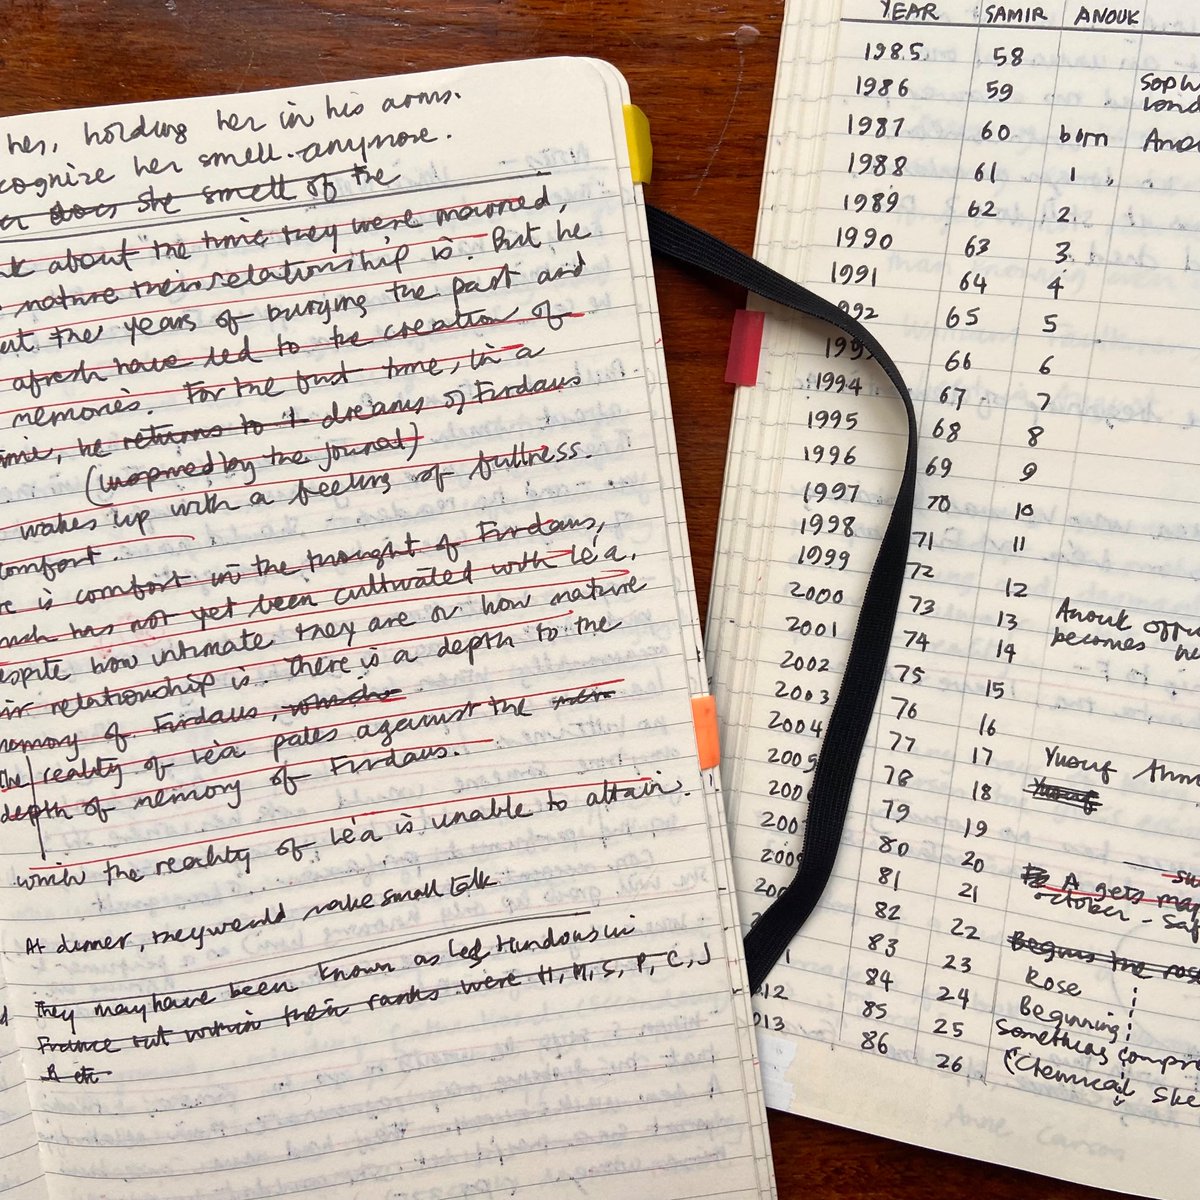 her, holding her in his arms.
cognize her smell. anymore.
does she smell of the
nk about the time they were married,
nature their relationship is. But he
ut the years of burying the past and
afresh have led to the creation of
memories. For the first time, in a
he returns to dreams of Firdaus
(inspired by the journal)
wakes up with a feeling of fullness.
comfort.
re is comfort in the thought of Firdaus,
has not yet been cultivated with Léa.
espite how intimate they are or how nature
ir relationship is. There is a depth to the
memory of Firdaus, which
the reality of Léa pales against the
depth of memory of Firdaus.
which the reality of Léa is unable to attain.
At dinner, they would make small talk
They may have been known as Les Hindous in
France but within their ranks were H, M, S, P, C, J
etc
YEAR SAMIR ANOUK
1985 58
1986 59
1987 60 born
1988 61 1
1989 62 2
1990 63 3
1991 64 4
992 65 5
199 66 6
1994 67 7
1995 68 8
1996 69 9
1997 70 10
1998 71 11
1999 72 12
2000 73 13 Anouk
2001 74 14 becomes
2002 75 15
2003 76 16
2004 77 17 Yusuf
2005 78 18 Yusuf
200 79 19
200 80 20 A gets
200 81 21 October -
82 22 Begins the rose
83 23 Rose
1 84 24 Beginning
012 85 25 Something
013 86 26 (Chemical